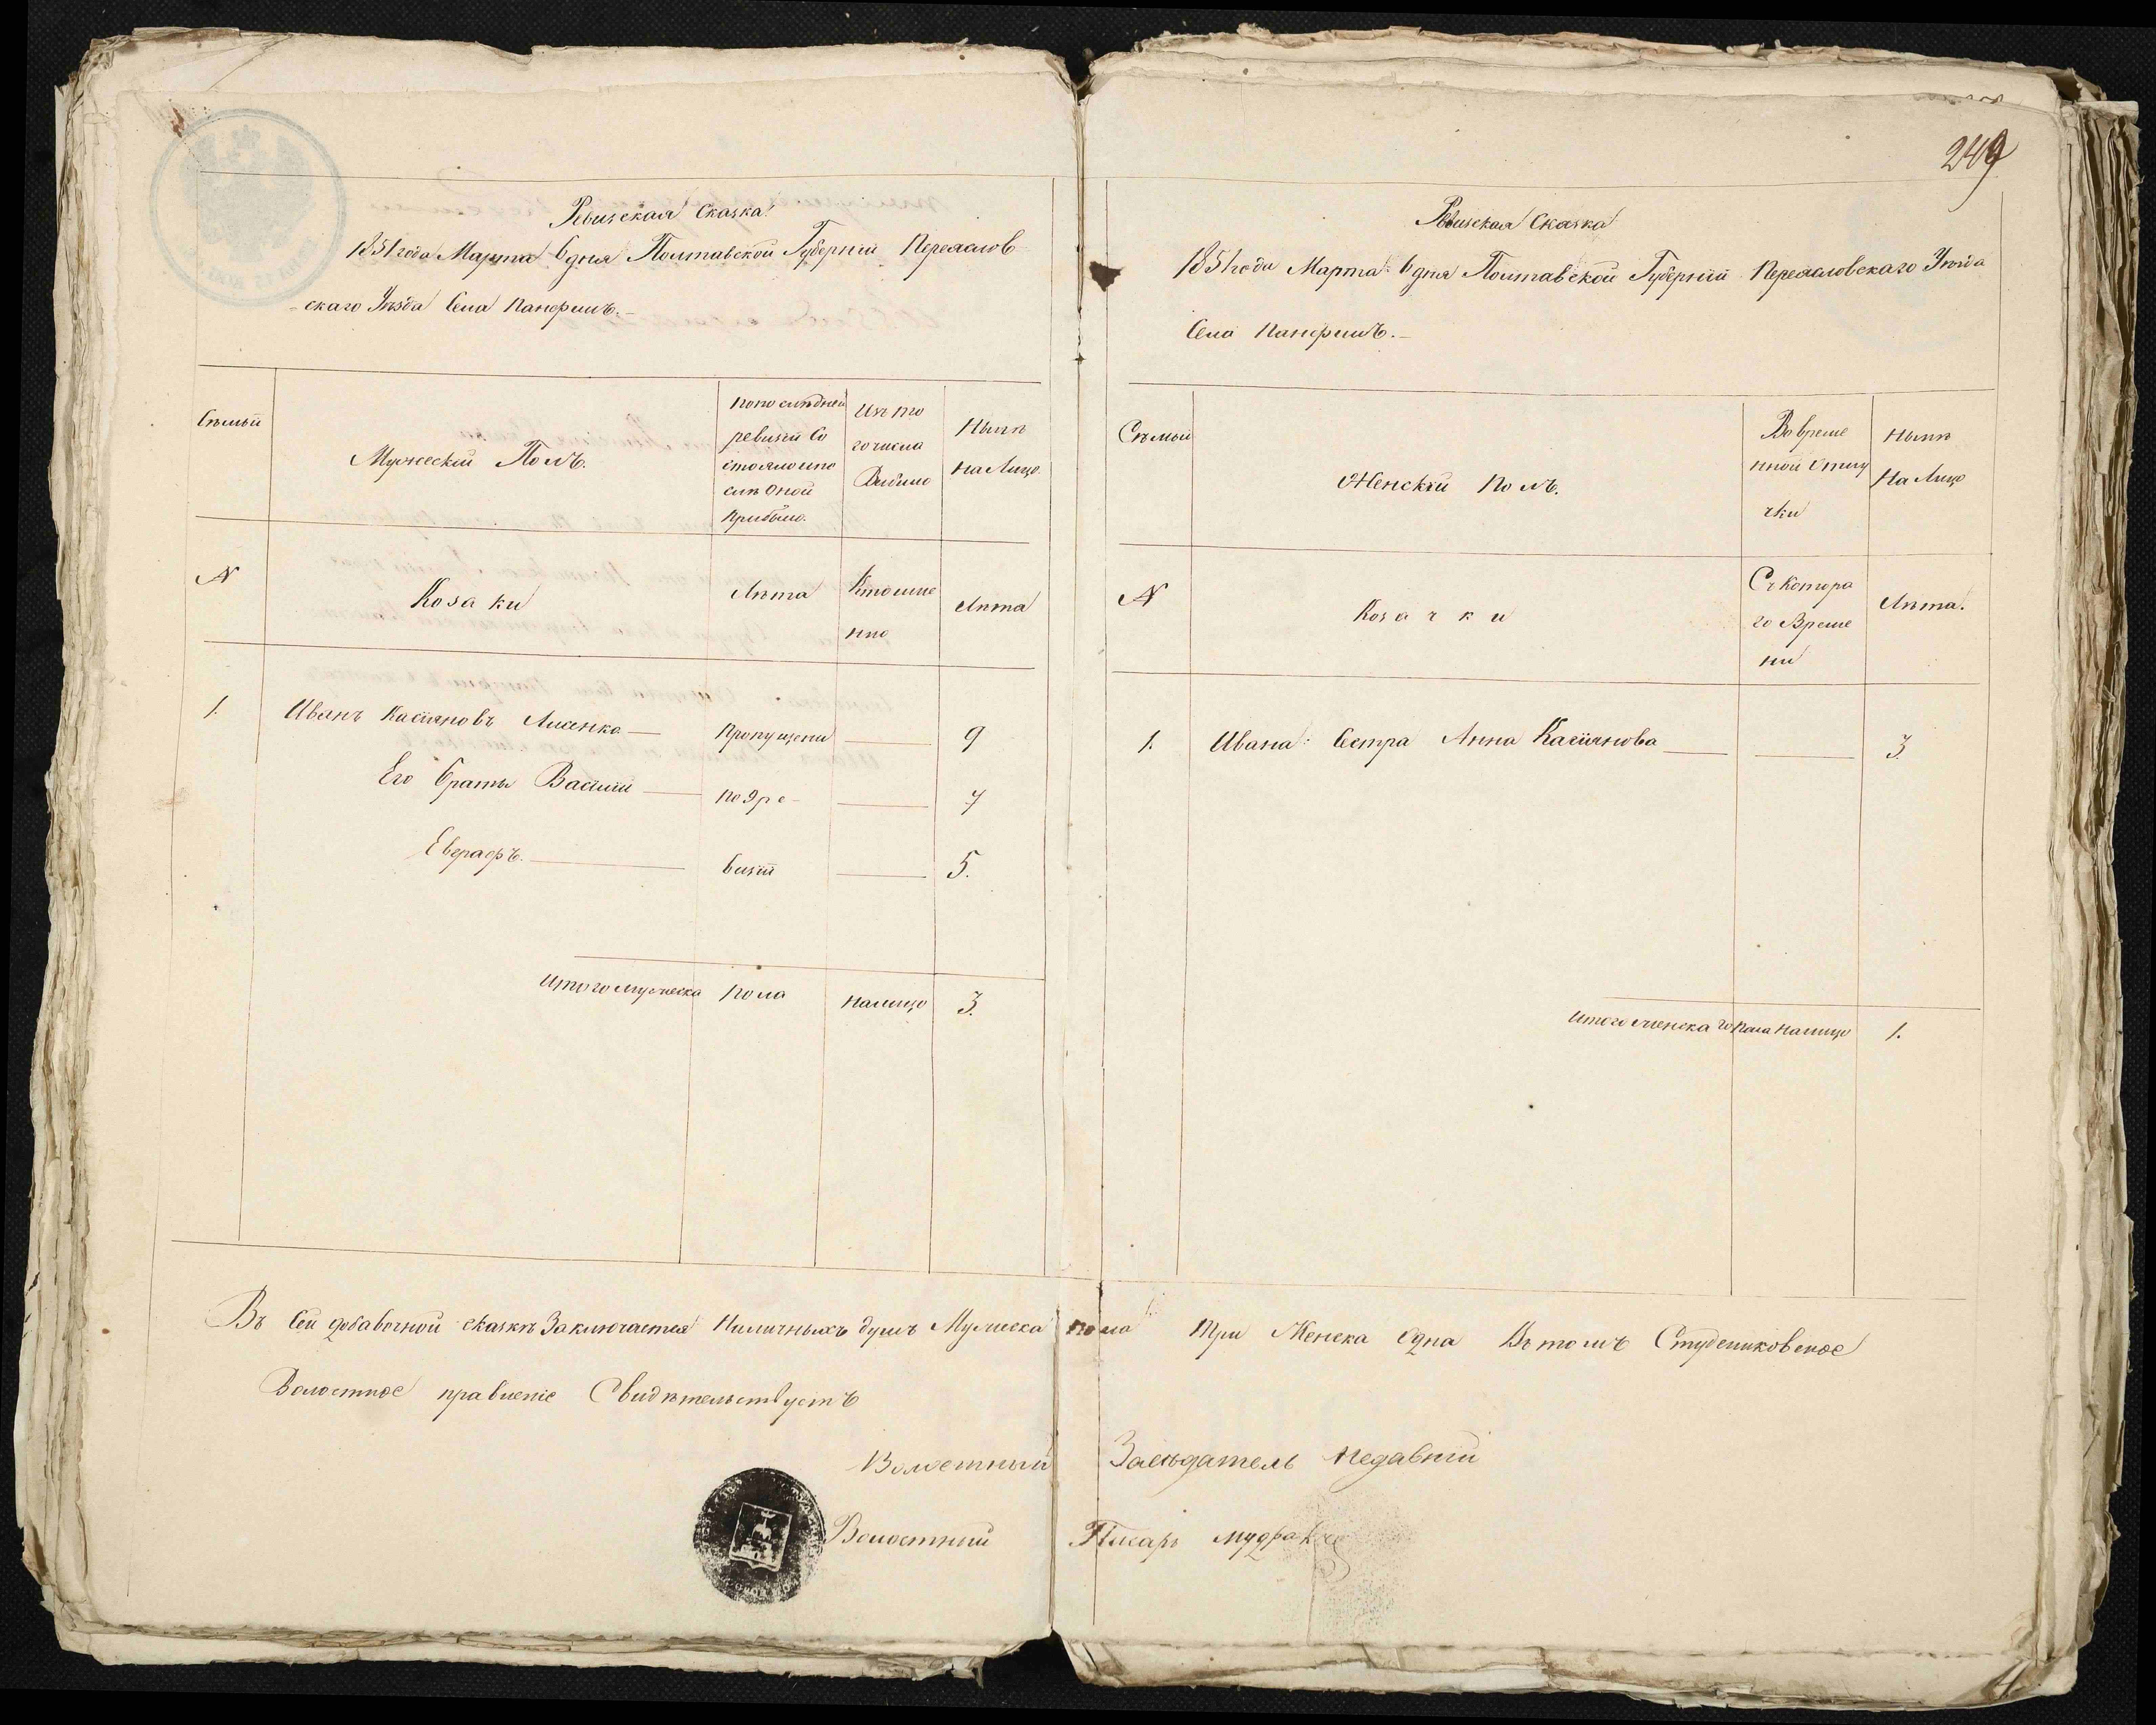 249
Ревизская Сказка
1851 года Марта 6 дня Полтавской Губернiи Переяслов-
-скаго Уѣзда Села Панфилъ.-
Сѣмьи
Мужескiй Полъ.
По последней
ревизiи Со
стояло и по
слѣ Оной
прибыло.
Изъ то
го числа
Выбыло
Нынѣ
на Лицо
N
Козаки
Лѣта
Когда име
нно
Лѣта
1. Иванъ Касiяновъ Лисенко — Пропущены — 9
Его братья Василiй — по 9 ре- — 7
Евграфъ. — визiи — 5.
Итого мужеска пола налицо 3.
Ревизская Сказка
1851 года Марта 6 дня Полтавской Губернiи Переясловскаго Уѣзда
Села Панфилъ.-
Сѣмьи
Женскiй Полъ.
Во време
нной Отлу
чки
Нынѣ
На Лицо
N
Козачки
Съ Котора
го Време
ни
Лѣта.
1. Ивана Сестра Анна Касiянова — — 3.
Итого женска го пола налицо 1.
Въ Сей добавочной сказкѣ Заключается Наличныхъ душъ Мужеска пола Три Женска Одна Въ томъ Студениковское
Волостное правленiе Свидѣтельствуетъ
Волостный Засѣдатель
Волостный Писарь